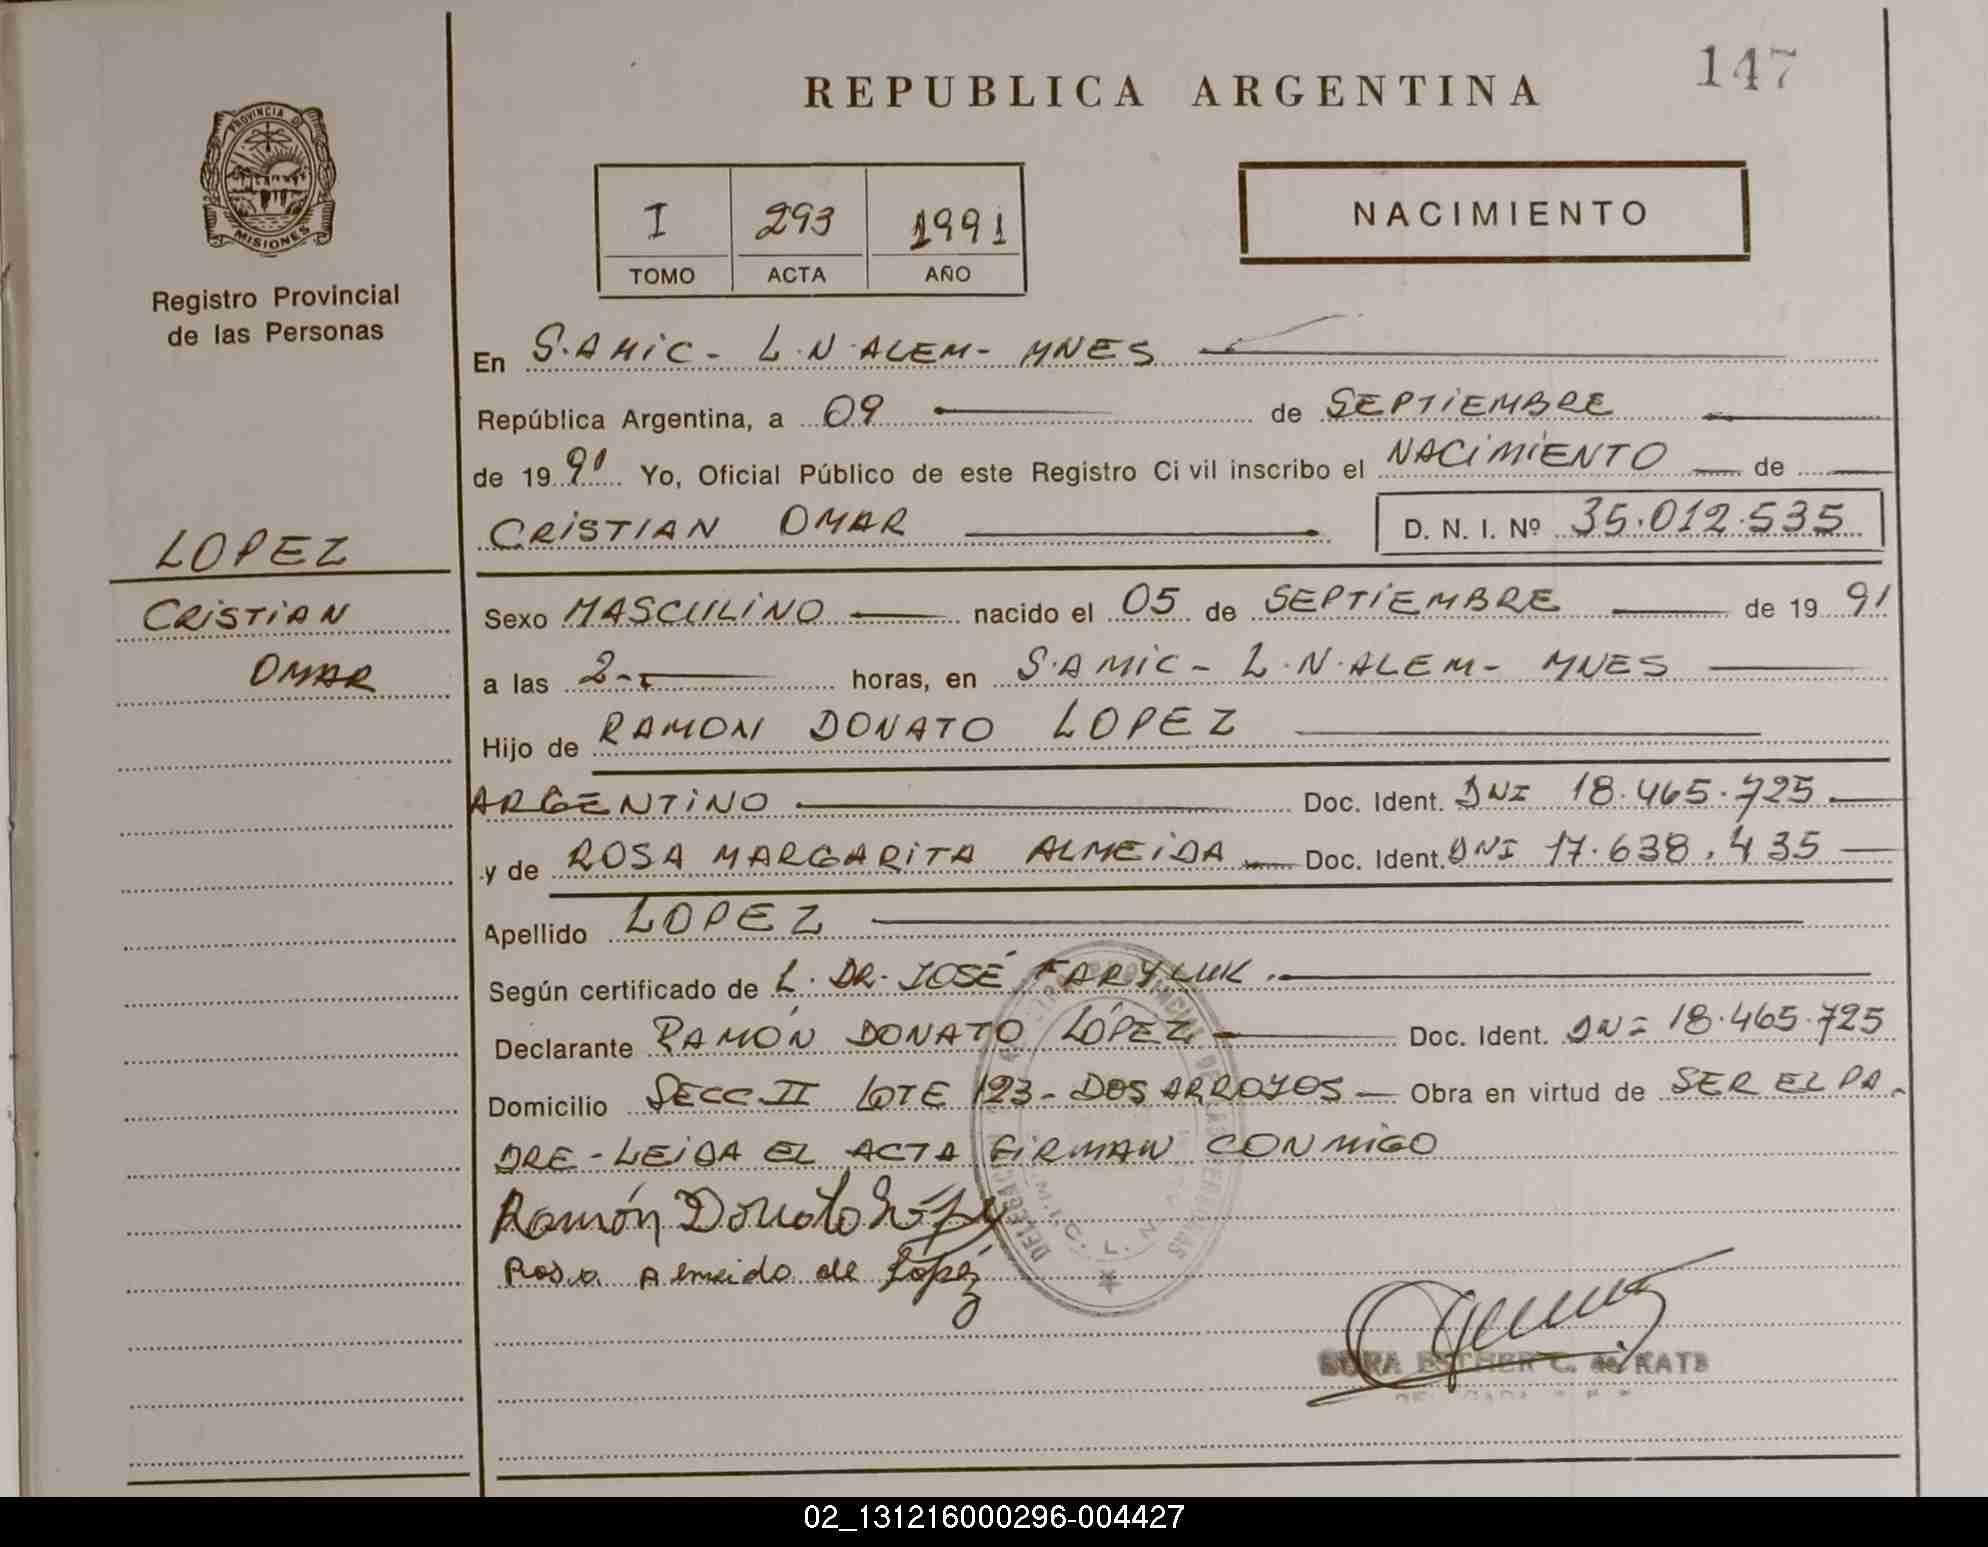 147
REPUBLICA ARGENTINA
PROVINCIA DE
MISIONES
Registro Provincial
de las Personas
I 293 1991
TOMO ACTA AÑO
NACIMIENTO
En S.AMIC - L.N.ALEM - MNES
República Argentina, a 09 de SEPTIEMBRE
de 1991 Yo, Oficial Público de este Registro Civil inscribo el NACIMIENTO de
CRISTIAN OMAR D. N. I. Nº 35.012.535
LOPEZ
CRISTIAN
OMAR
Sexo MASCULINO nacido el 05 de SEPTIEMBRE de 1991
a las 2- horas, en S.AMIC - L.N.ALEM - MNES
Hijo de RAMON DONATO LOPEZ
ARGENTINO Doc. Ident. DNI 18.465.725
y de ROSA MARGARITA ALMEIDA Doc. Ident. DNI 17.638.435
Apellido LOPEZ
Según certificado de L. DR. JOSÉ FARYLUK.
Declarante RAMÓN DONATO LÓPEZ Doc. Ident. DNI 18.465.725
Domicilio SECC II LOTE 123 - DOS ARROYOS - Obra en virtud de SER EL PA-
DRE - LEIDA EL ACTA FIRMAN CONMIGO
Ramón Donato López
Rosa Almeida de López
ESTHER C. de KATZ
02_131216000296-004427